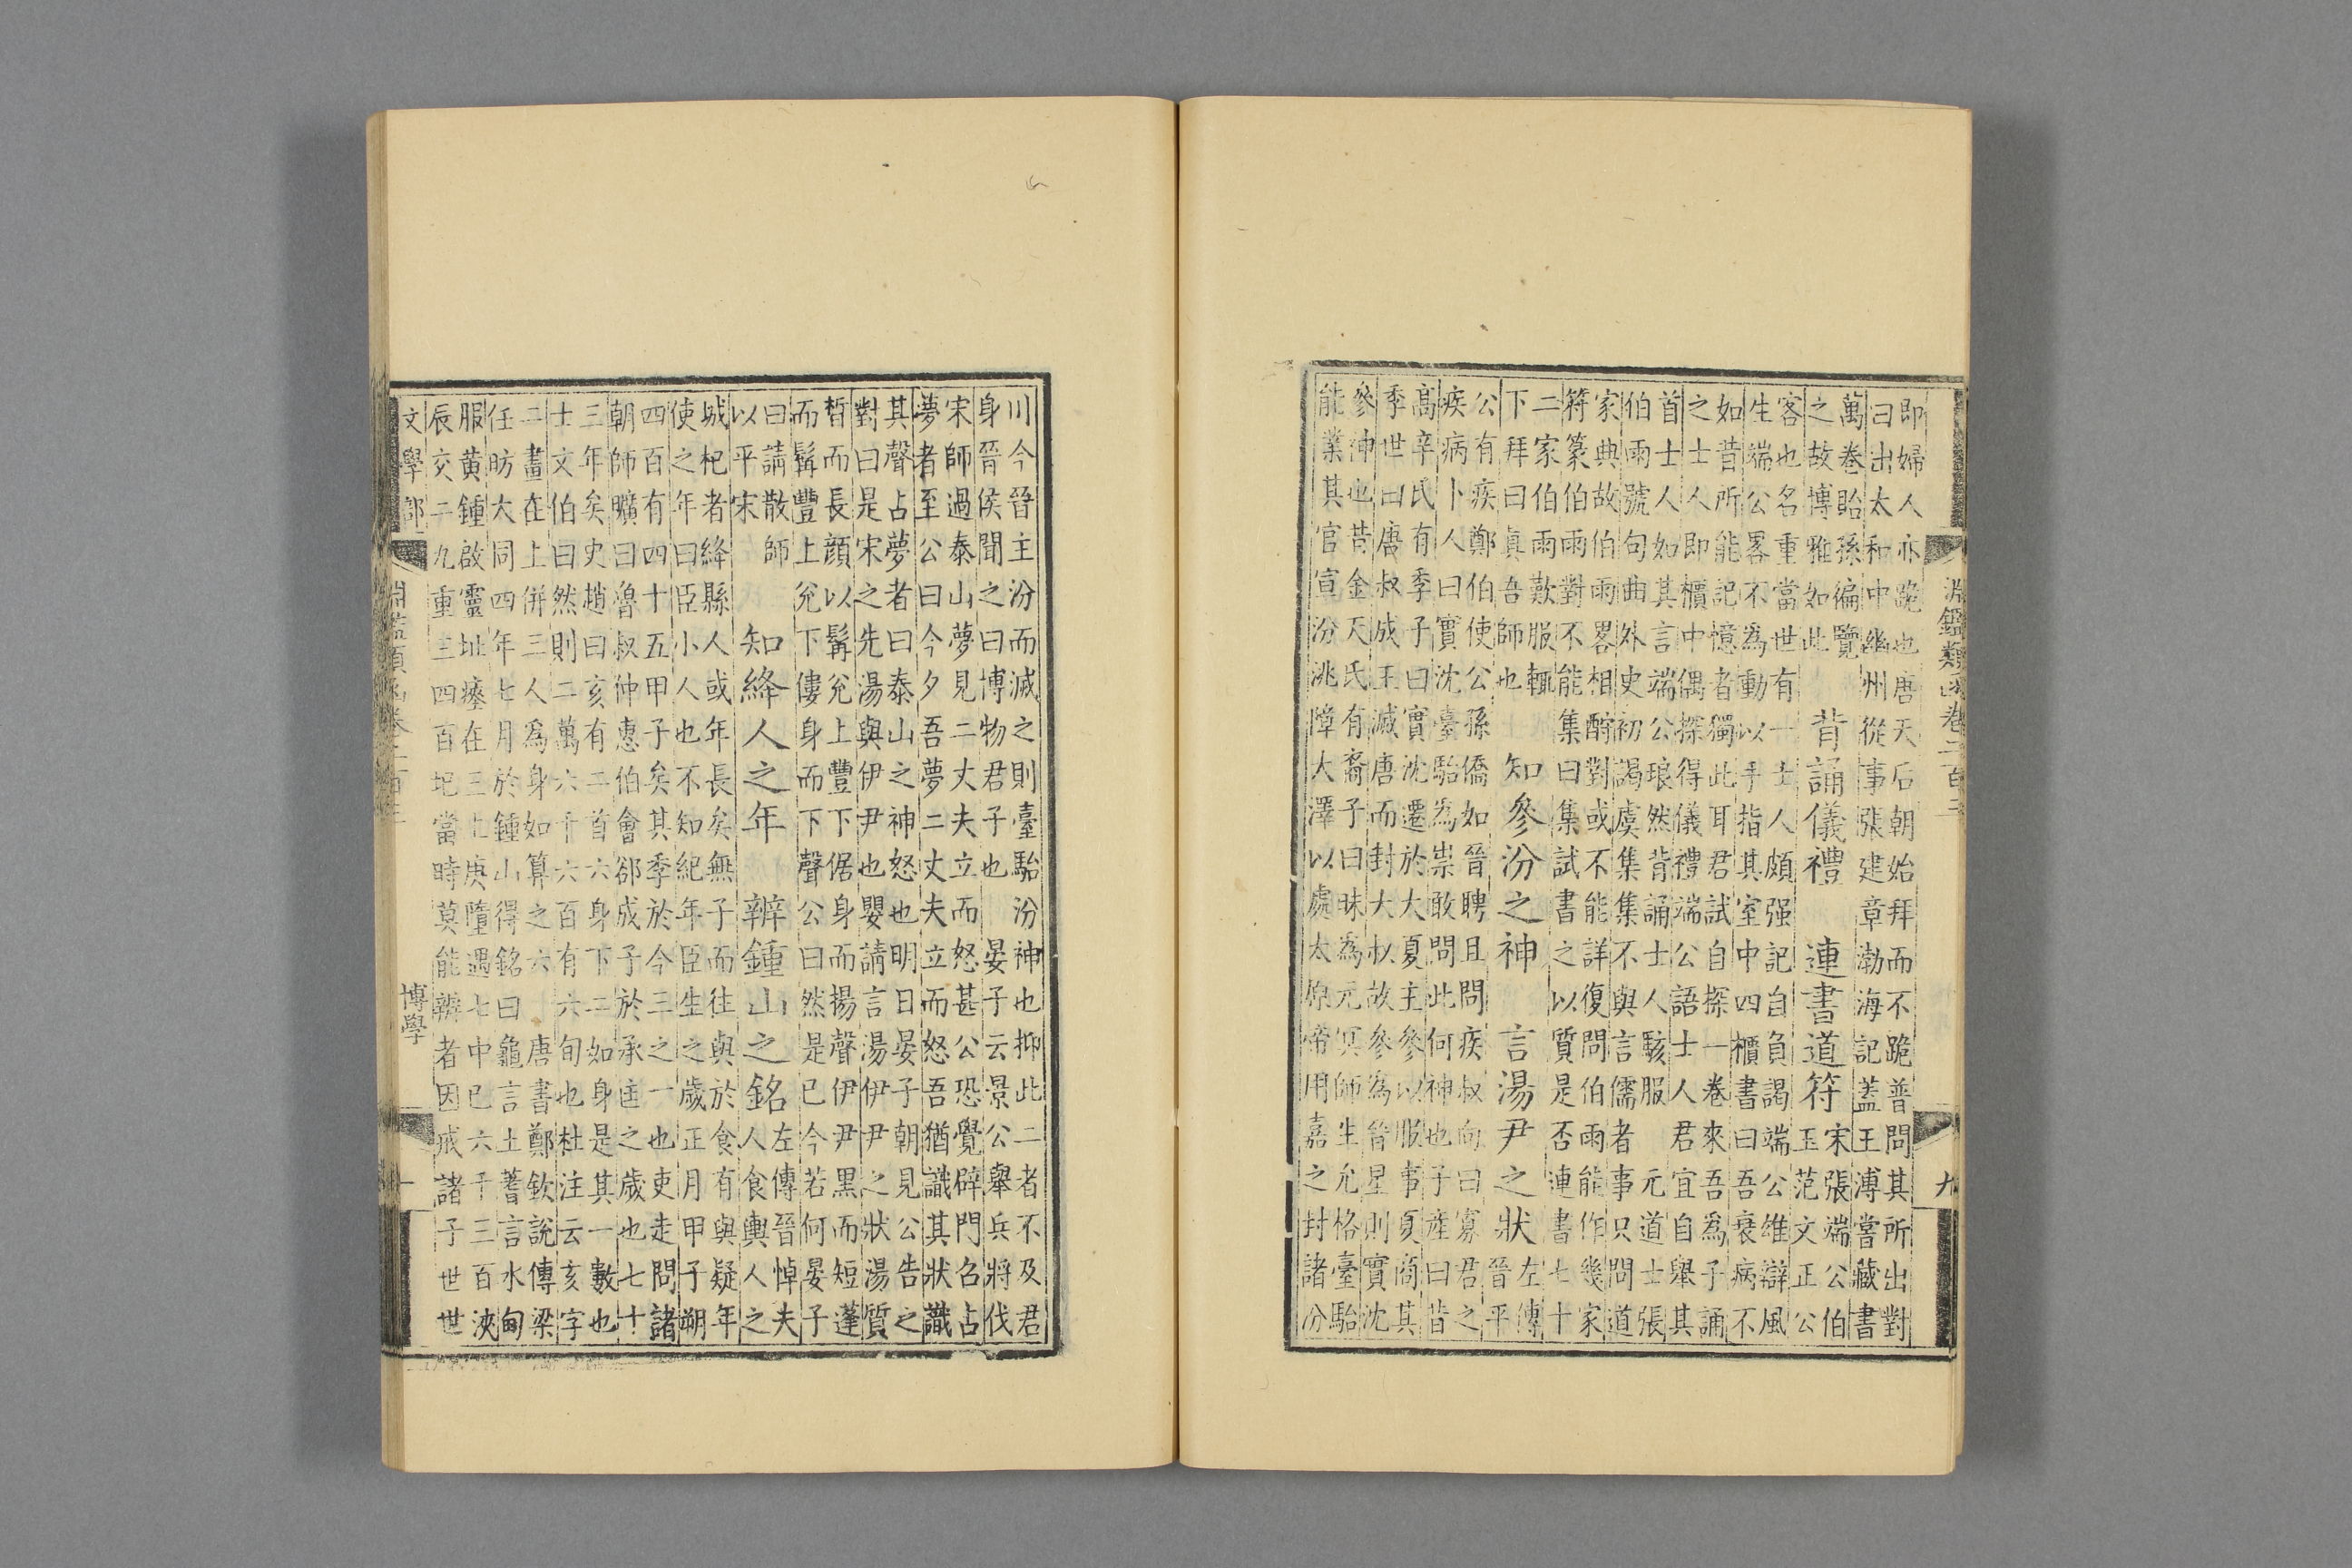 淵鑑類函卷二百三 九
即婦人亦跪也唐天后朝始拜而不跪普問其所出對
曰出太和中幽州從事張建章渤海記蓋王溥嘗藏書
萬卷貽孫徧覽
之故博雅如此
背誦儀禮 連書道符
宋張端公伯
玉范文正公
客也名重當世有一士人頗强記自負謁端公雄辯風
生端公畧不為動以手指其室中四櫃書曰吾衰病不
如昔所能記憶者獨此耳君試自探一卷來吾為子誦
之士人即櫃中偶探得儀禮端公語士人君宜自舉其
首士人如其言端公琅然背誦士人駭服 元道士張
伯雨號句曲外史初謁虞集集不與言儒者事只問道
家典故伯雨畧相酧對或不能詳復問伯雨能作幾家
符篆伯雨對不能集曰集試書之以質是否連書七十
二家伯雨歎服輒
下拜曰眞吾師也
知參汾之神 言湯尹之狀
左傳
晉平
公有疾鄭伯使公孫僑如晉聘且問疾叔向曰寡君之
疾病卜人曰實沈臺駘為祟敢問此何神也子産曰昔
高辛氏有季子曰實沈遷於大夏主參以服事夏商其
季世曰唐叔成王滅唐而封大叔故參為晉星則實沈
參神也昔金天氏有裔子曰昧為元冥師生允格臺駘
能業其官宣汾洮障大澤以處太原帝用嘉之封諸汾
川今晉主汾而滅之則臺駘汾神也抑此二者不及君
身晉侯聞之曰博物君子也 晏子云景公舉兵將伐
宋師過泰山夢見二丈夫立而怒甚公恐覺辟門召占
夢者至公曰今夕吾夢二丈夫立而怒吾猶識其狀識
其聲占夢者曰泰山之神怒也明日晏子朝見公告之
對曰是宋之先湯與伊尹也嬰請言湯伊尹之狀湯質
皙而長顔以髯兊上豐下倨身而揚聲伊尹黑而短蓬
而髯豐上兊下僂身而下聲公曰然是已今若何晏子
曰請散師
以平宋
知絳人之年 辨鍾山之銘
左傳晉悼夫
人食輿人之
城杞者絳縣人或年長矣無子而往與於食有與疑年
使之年曰臣小人也不知紀年臣生之歲正月甲子朔
四百有四十五甲子矣其季於今三之一也吏走問諸
朝師曠曰魯叔仲惠伯會郤成子於承匡之歲也七十
三年矣史趙曰亥有二首六身下二如身是其一數也
士文伯曰然則二萬六千六百有六旬也杜注云亥字
二畫在上併三人為身如算之六 唐書鄭欽說傳梁
任昉大同四年七月於鍾山得銘曰龜言土蓍言水甸
服黄鍾啟靈址瘞在三上庚墮遇七中巳六千三百浹
辰交二九重三四百圯當時莫能辨者因戒諸子世世
文學部 淵鑑類函卷二百三 博學